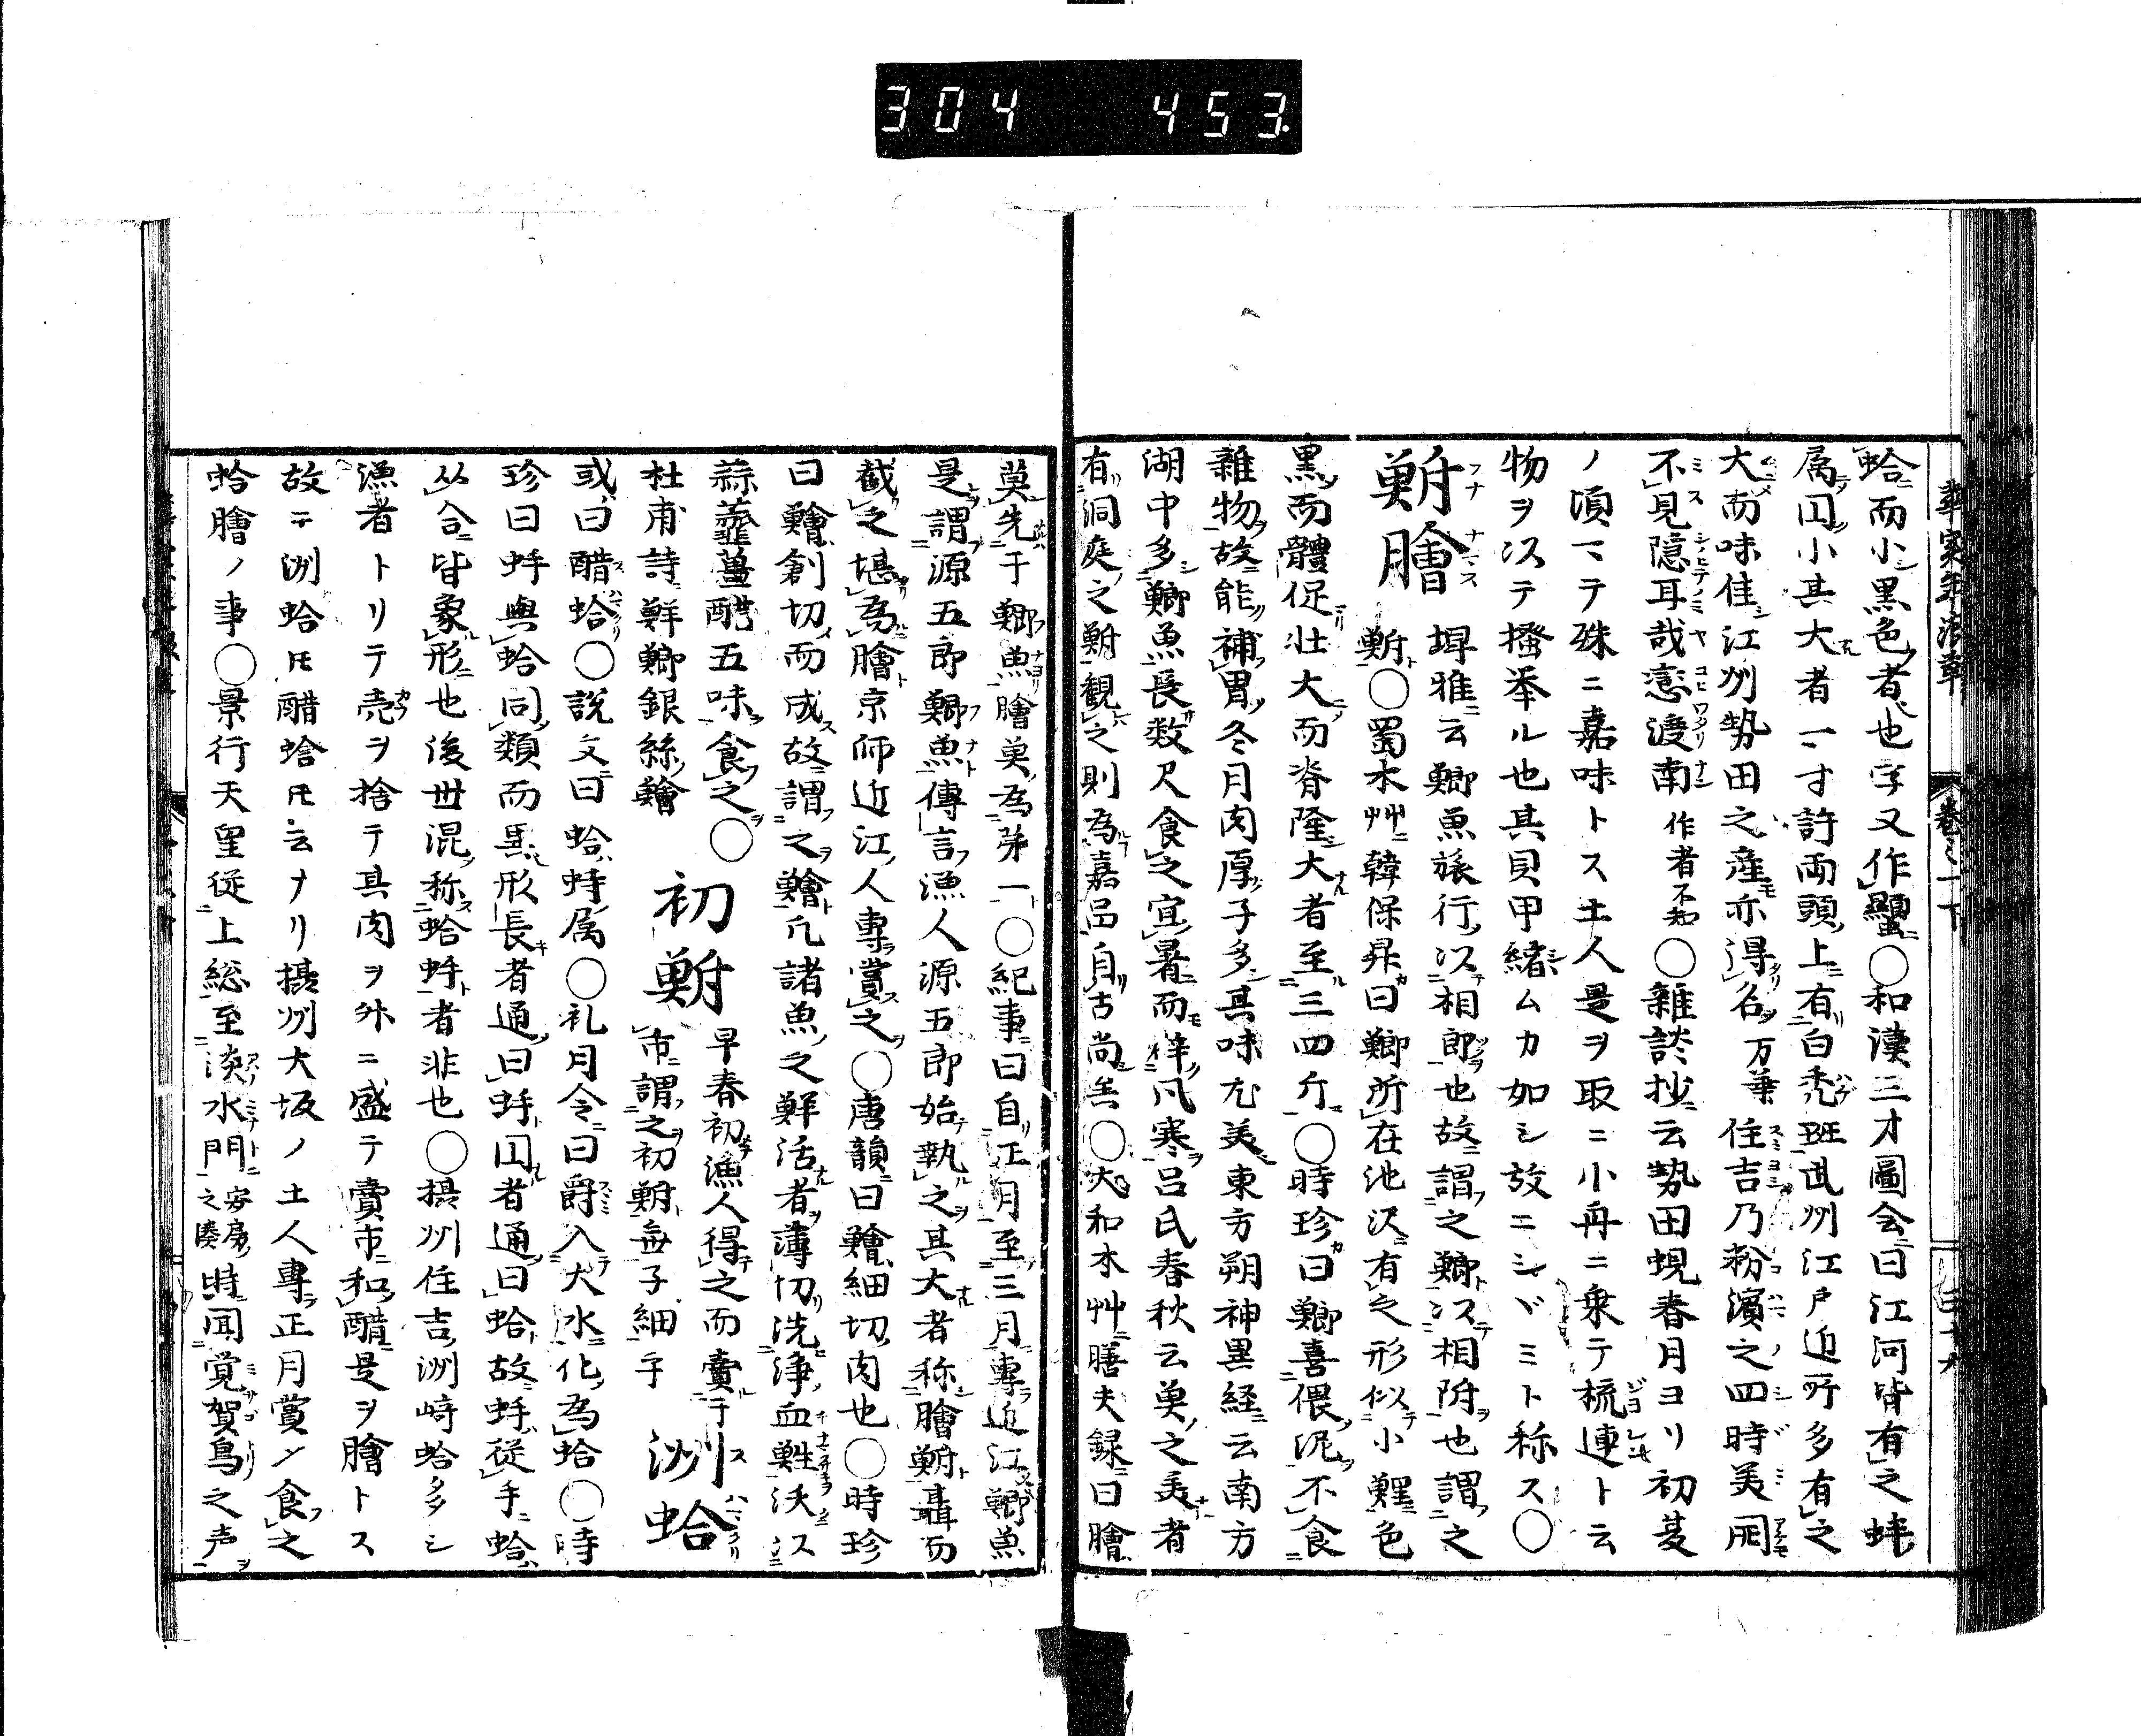 304 453.
華実年浪草 巻之一下
蛤而小黒色者也字又作䗯○和漢三才圖会曰江河皆有之蚌
属円小其大者一寸許両頭上有白禿斑武州江戸近所多有之
大而味佳江州勢田之産亦得名万葉 住吉乃粉濱之四時美開
不見隠耳哉戀渡南 作者不知○雑談抄云勢田蜆春月ヨリ初夏
ノ頃マテ殊ニ嘉味トス土人是ヲ取ニ小舟ニ乗テ梳連ト云
物ヲ以テ搔挙ル也其貝甲縮ムカ如シ故ニシヾミト称ス○
鮒膾 埤雅云鯽魚旅行以相即也故謂之鯽以相附也謂之
鮒○蜀本艸韓保昇曰鯽所在池沢有之形似小鯉色
黒而體促壮大而脊隆大者至三四斤○時珍曰鯽喜偎泥不食
雑物故能補胃冬月肉厚子多其味尤美東方朔神異経云南方
湖中多鯽魚長数尺食之宜暑而辟風寒呂氏春秋云魚之美者
有洞庭之鮒観之則為嘉品自古尚矣○大和本艸膳夫録曰膾
莫先于鯽魚膾魚為第一○紀事曰自正月至三月専近江鯽魚
是謂源五郎鯽魚傳言漁人源五郎始執之其大者称膾鮒聶而
截之堪為膾京師近江人専賞之○唐韻曰鱠細切肉也○時珍
曰鱠創切而成故謂之鱠凡諸魚之鮮活者薄切洗浄血鮏沃ス
蒜薤薑醋五味食之○
杜甫詩鮮鯽銀絲鱠 初鮒 早春初漁人得之而賣于
市謂之初鮒無子細乎 洲蛤
或曰醋蛤○説文曰蛤蜯属○礼月令曰爵入大水化為蛤○時
珍曰蚌與蛤同類而異形長者通曰蚌円者通曰蛤故蚌従手蛤
从合皆象形也後世混称蛤蚌者非也○摂州住吉洲崎蛤多シ
漁者トリテ売ヲ捨テ其肉ヲ外ニ盛テ賣市和醋是ヲ膾トス
故ニ洲蛤𪜈醋蛤𪜈云ナリ摂州大坂ノ土人専正月賞ノ食之
蛤膾ノ事○景行天皇従上総至淡水門 安房之湊 時聞覚賀鳥之声